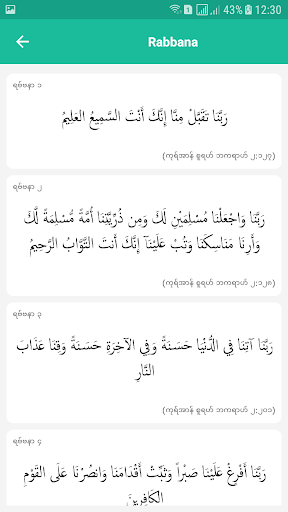 43% 12:30
Rabbana
ရဗ်ဗနာ ၁
رَبَّنَا تَقَبَّلْ مِنَّا إِنَّكَ أَنْتَ السَّمِيعُ العَلِيمُ
(ကုရ်အာန် စူရဟ် ဘကရာဟ် ၂:၁၂၇)
ရဗ်ဗနာ ၂
رَبَّنَا وَاجْعَلْنَا مُسْلِمَيْنِ لَكَ وَمِن ذُرِّيَّتِنَا أُمَّةً مُّسْلِمَةً لَّكَ
وَأَرِنَا مَنَاسِكَنَا وَتُبْ عَلَيْنَآ إِنَّكَ أَنتَ التَّوَّابُ الرَّحِيمُ
(ကုရ်အာန် စူရဟ် ဘကရာဟ် ၂:၁၂၈)
ရဗ်ဗနာ ၃
رَبَّنَا آتِنَا فِي الدُّنْيَا حَسَنَةً وَفِي الآخِرَةِ حَسَنَةً وَقِنَا عَذَابَ
النَّارِ
(ကုရ်အာန် စူရဟ် ဘကရာဟ် ၂:၂၀၁)
ရဗ်ဗနာ ၄
رَبَّنَا أَفْرِغْ عَلَيْنَا صَبْراً وَثَبِّتْ أَقْدَامَنَا وَانصُرْنَا عَلَى القَوْمِ
الكَافِرِينَ